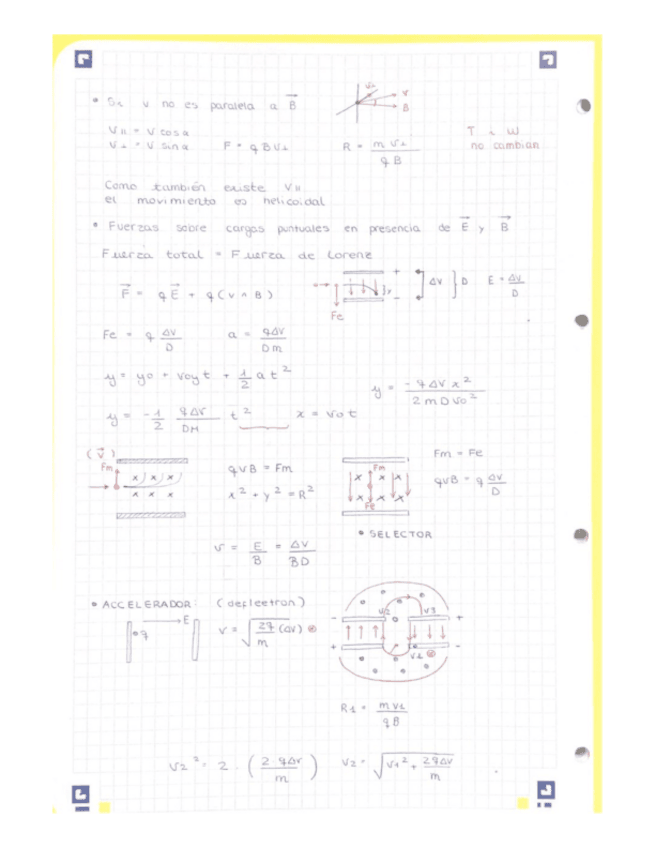 • Si v no es paralela a B⃗
V⊥
v
B
V|| = V cosα
V⊥ = V sinα F = q B V⊥ R = m V⊥ / q B
T i W
no cambian
Como también existe V||
el movimiento es helicoidal
• Fuerzas sobre cargas puntuales en presencia de E⃗ y B⃗
Fuerza total = Fuerza de Lorenz
F⃗ = q E⃗ + q ( v ∧ B )
+
-
y
Fe
ΔV } D E = ΔV / D
Fe = q ΔV / D a = qΔV / Dm
y = yo + voy t + 1/2 a t²
y = - q ΔV x² / 2 m D vo²
y = - 1/2 qΔV / DM t² x = vo t
(v⃗)
Fm
x x x
x x x
qvB = Fm
x² + y² = R²
Fm
x x x
x x x
Fe
Fm = Fe
qvB = q ΔV / D
• SELECTOR
v = E / B = ΔV / BD
• ACCELERADOR (defleetron)
E
q
v = √ 2q / m (ΔV) ⊗
v2 v3
- +
+ -
v1 ⊗
R1 = m v1 / q B
v2² = 2 · ( 2 · qΔV / m ) v2 = √ v1² + 2qΔV / m